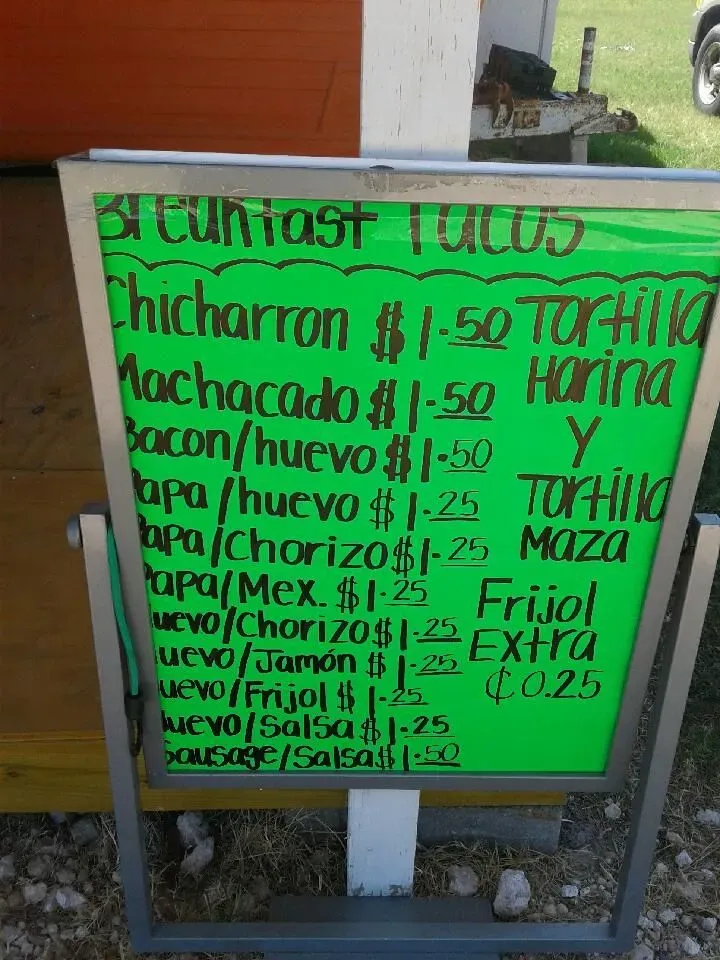 Breakfast Tacos
Chicharron $1.50
Machacado $1.50
Bacon/huevo $1.50
Papa/huevo $1.25
Papa/Chorizo $1.25
Papa/Mex. $1.25
Huevo/Chorizo $1.25
Huevo/Jamón $1.25
Huevo/Frijol $1.25
Huevo/Salsa $1.25
Sausage/Salsa $1.50
Tortilla
Harina
Y
Tortilla
Maza
Frijol
Extra
¢0.25